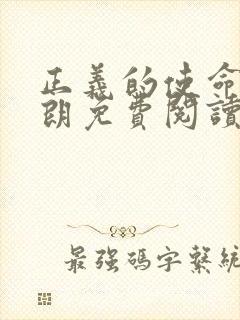 正義的使命
朗免費閱讀
最强碼字繫統